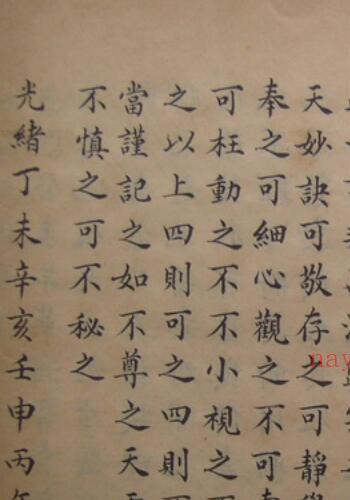 天妙訣可敬存之可靜
奉之可細心觀之不可
可枉動之不不小視之
之以上四則可之四則
當謹記之如不尊之天
不慎之可不秘之
光緒丁未辛亥壬申丙
nay